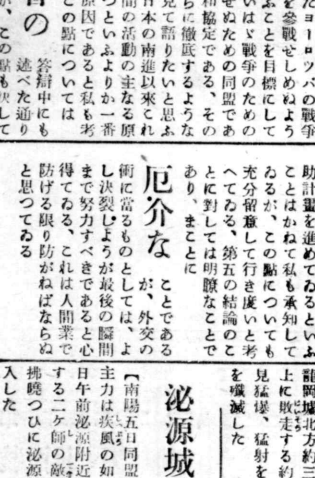 たヨーロツパの戰爭
を參戰せしめぬよう
ぶことを目標にして
いはゞ戰爭のための
せぬための同盟であ
和協定である、その
に徹底するような
見て語りたいと思ふ
日本の南進以來これ
間の活動の主なる原
つといふよりか一番
原因であると私も考
この點については
の
答辯中にも
述べた通り
が、この點も決して
助計畫を進めてゐるといふ
ことはかねて私も承知して
ゐるが、この點についても
充分留意して行き度いと考
へてゐる、第五の結論のこ
とに對しては明瞭なことで
あり、まことに
厄介な
ことである
が、外交の
衝に當るものとしては、よ
し決裂しようが最後の瞬間
まで努力すべきであると心
得てゐる、これは人間業で
防げる限り防がねばならぬ
と思つてゐる
龍岡城北方約三
上に敗走する約
見猛爆、猛射を
を殲滅した
泌源城
【南陽五日同盟
主力は疾風の如
日午前泌源附近
する二ケ師の敵
拂曉つひに泌源
入した